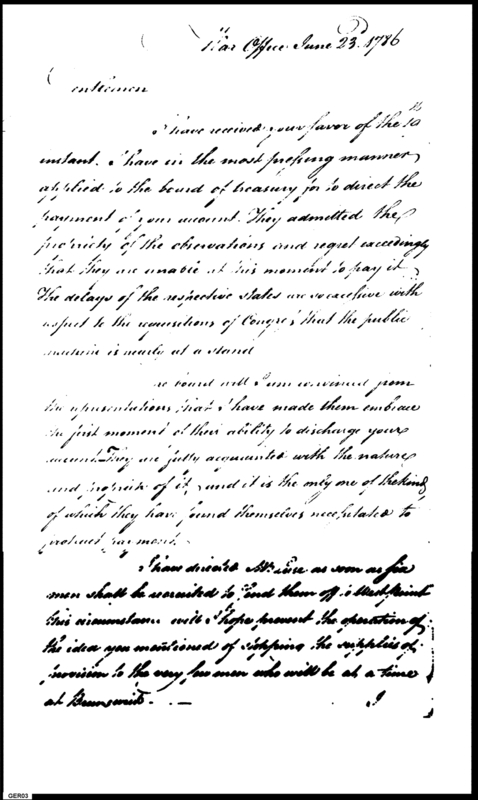 War Office June 23d. 1786
Gentlemen
I have received your favor of the 12th
instant. I have in the most pressing manner
applied to the board of treasury for to direct the
payment of your account. They admitted the
propriety of the observations and regret exceedingly
that they are unable at this moment to pay it
The delays of the respective states are so excessive with
respect to the requisitions of Congress that the public
machine is nearly at a stand
The board will I am convinced from
the representations that I have made them embrace
the first moment of their ability to discharge your
account. They are fully acquainted with the nature
and propriety of it, and it is the only one of the kind
of which they have found themselves necessitated to
protract payment.
I have directed Mr. as soon as six
men shall be recruited to send them off to West point
this circumstance will I hope prevent the operation of
the idea you mentioned of stopping the supplies of
provision to the very few men who will be at a time
at Brunswick. —
I
GER03